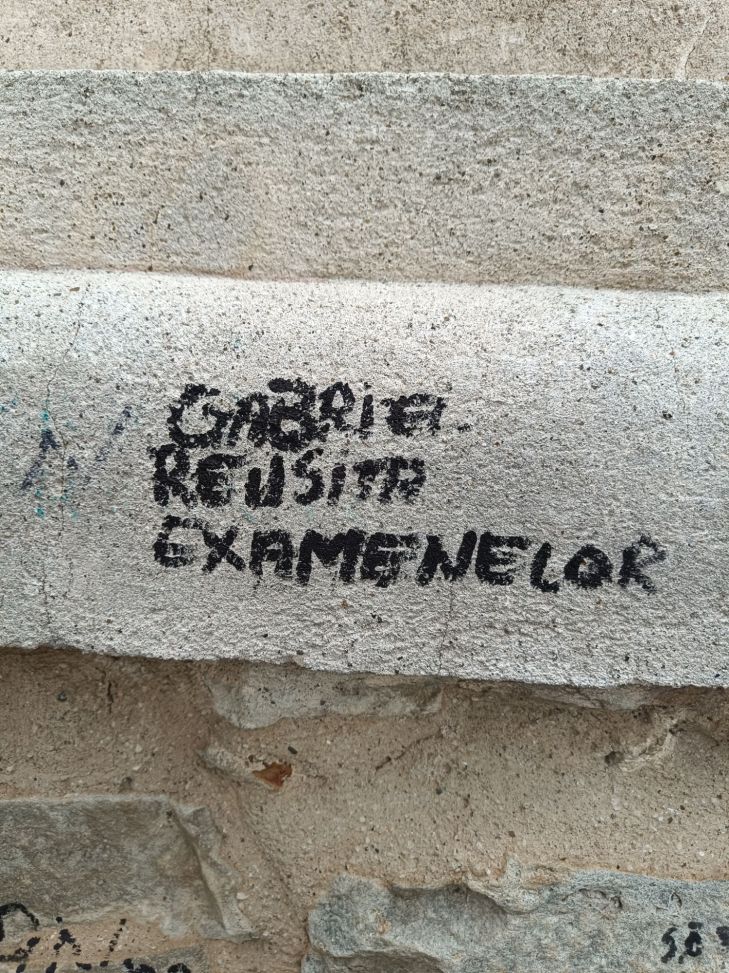 GABRIEL
REUSITA
EXAMENELOR